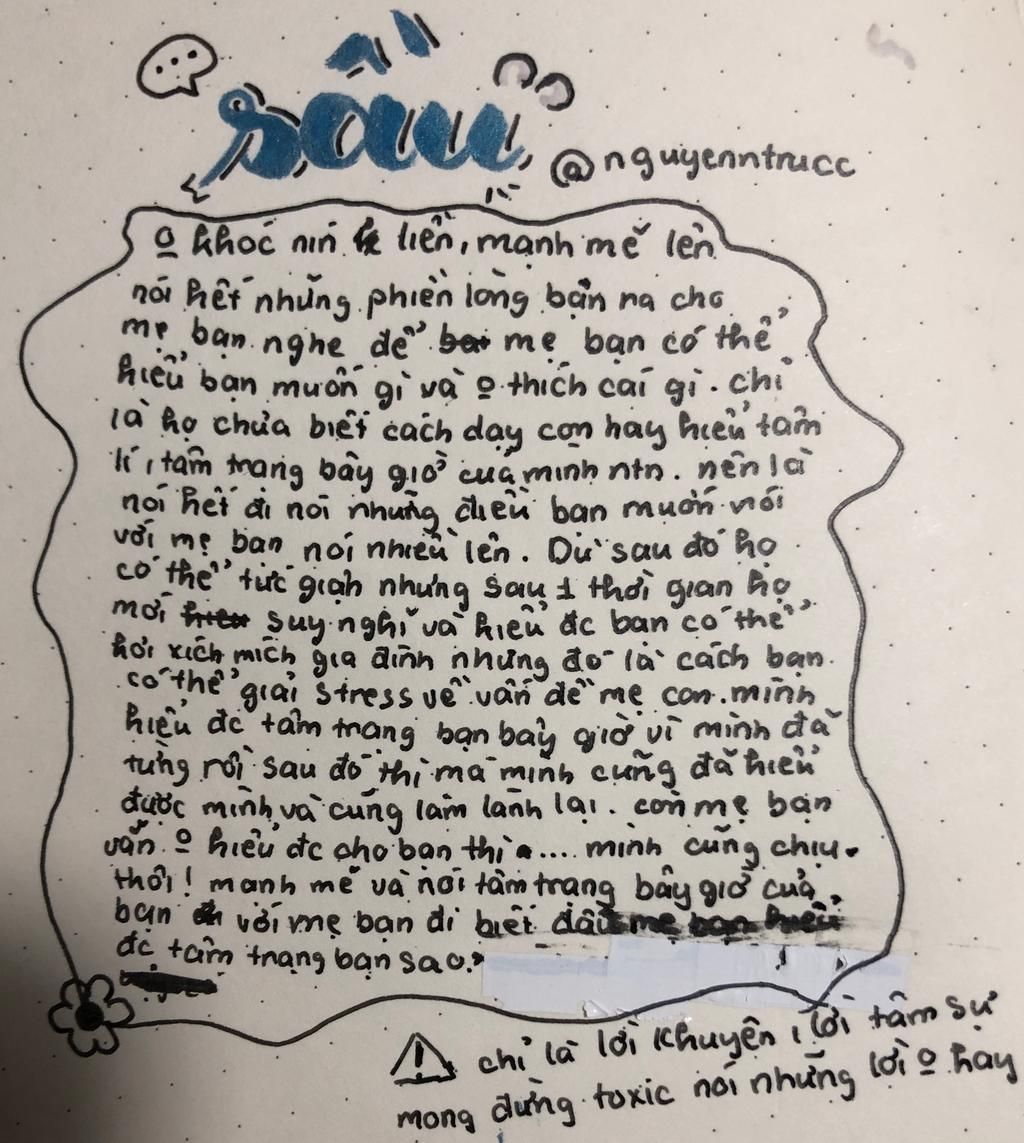 sầu
@nguyenntrucc
o khóc nín liền, mạnh mẽ lên
nói hết những phiền lòng bạn ra cho
mẹ bạn nghe để mẹ bạn có thể
hiểu bạn muốn gì và o thích cái gì. chỉ
là họ chưa biết cách dạy con hay hiểu tâm
lí, tâm trạng bây giờ của mình ntn. nên là
nói hết đi nói những điều bạn muốn nói
với mẹ bạn nói nhiều lên. Dù sau đó họ
có thể tức giận nhưng sau 1 thời gian họ
mới suy nghĩ và hiểu đc bạn có thể
hơi xích mích gia đình nhưng đó là cách bạn
có thể giải stress về vấn đề mẹ con. mình
hiểu đc tâm trạng bạn bây giờ vì mình đã
từng rồi sau đó thì má mình cũng đã hiểu
được mình và cũng làm lành lại. còn mẹ bạn
vẫn o hiểu đc cho bạn thì .... mình cũng chịu
thôi! mạnh mẽ và nói tâm trạng bây giờ của
bạn với mẹ bạn đi biết đâu mẹ bạn hiểu
đc tâm trạng bạn sao?
chỉ là lời khuyên, lời tâm sự
mong đừng toxic nói những lời o hay